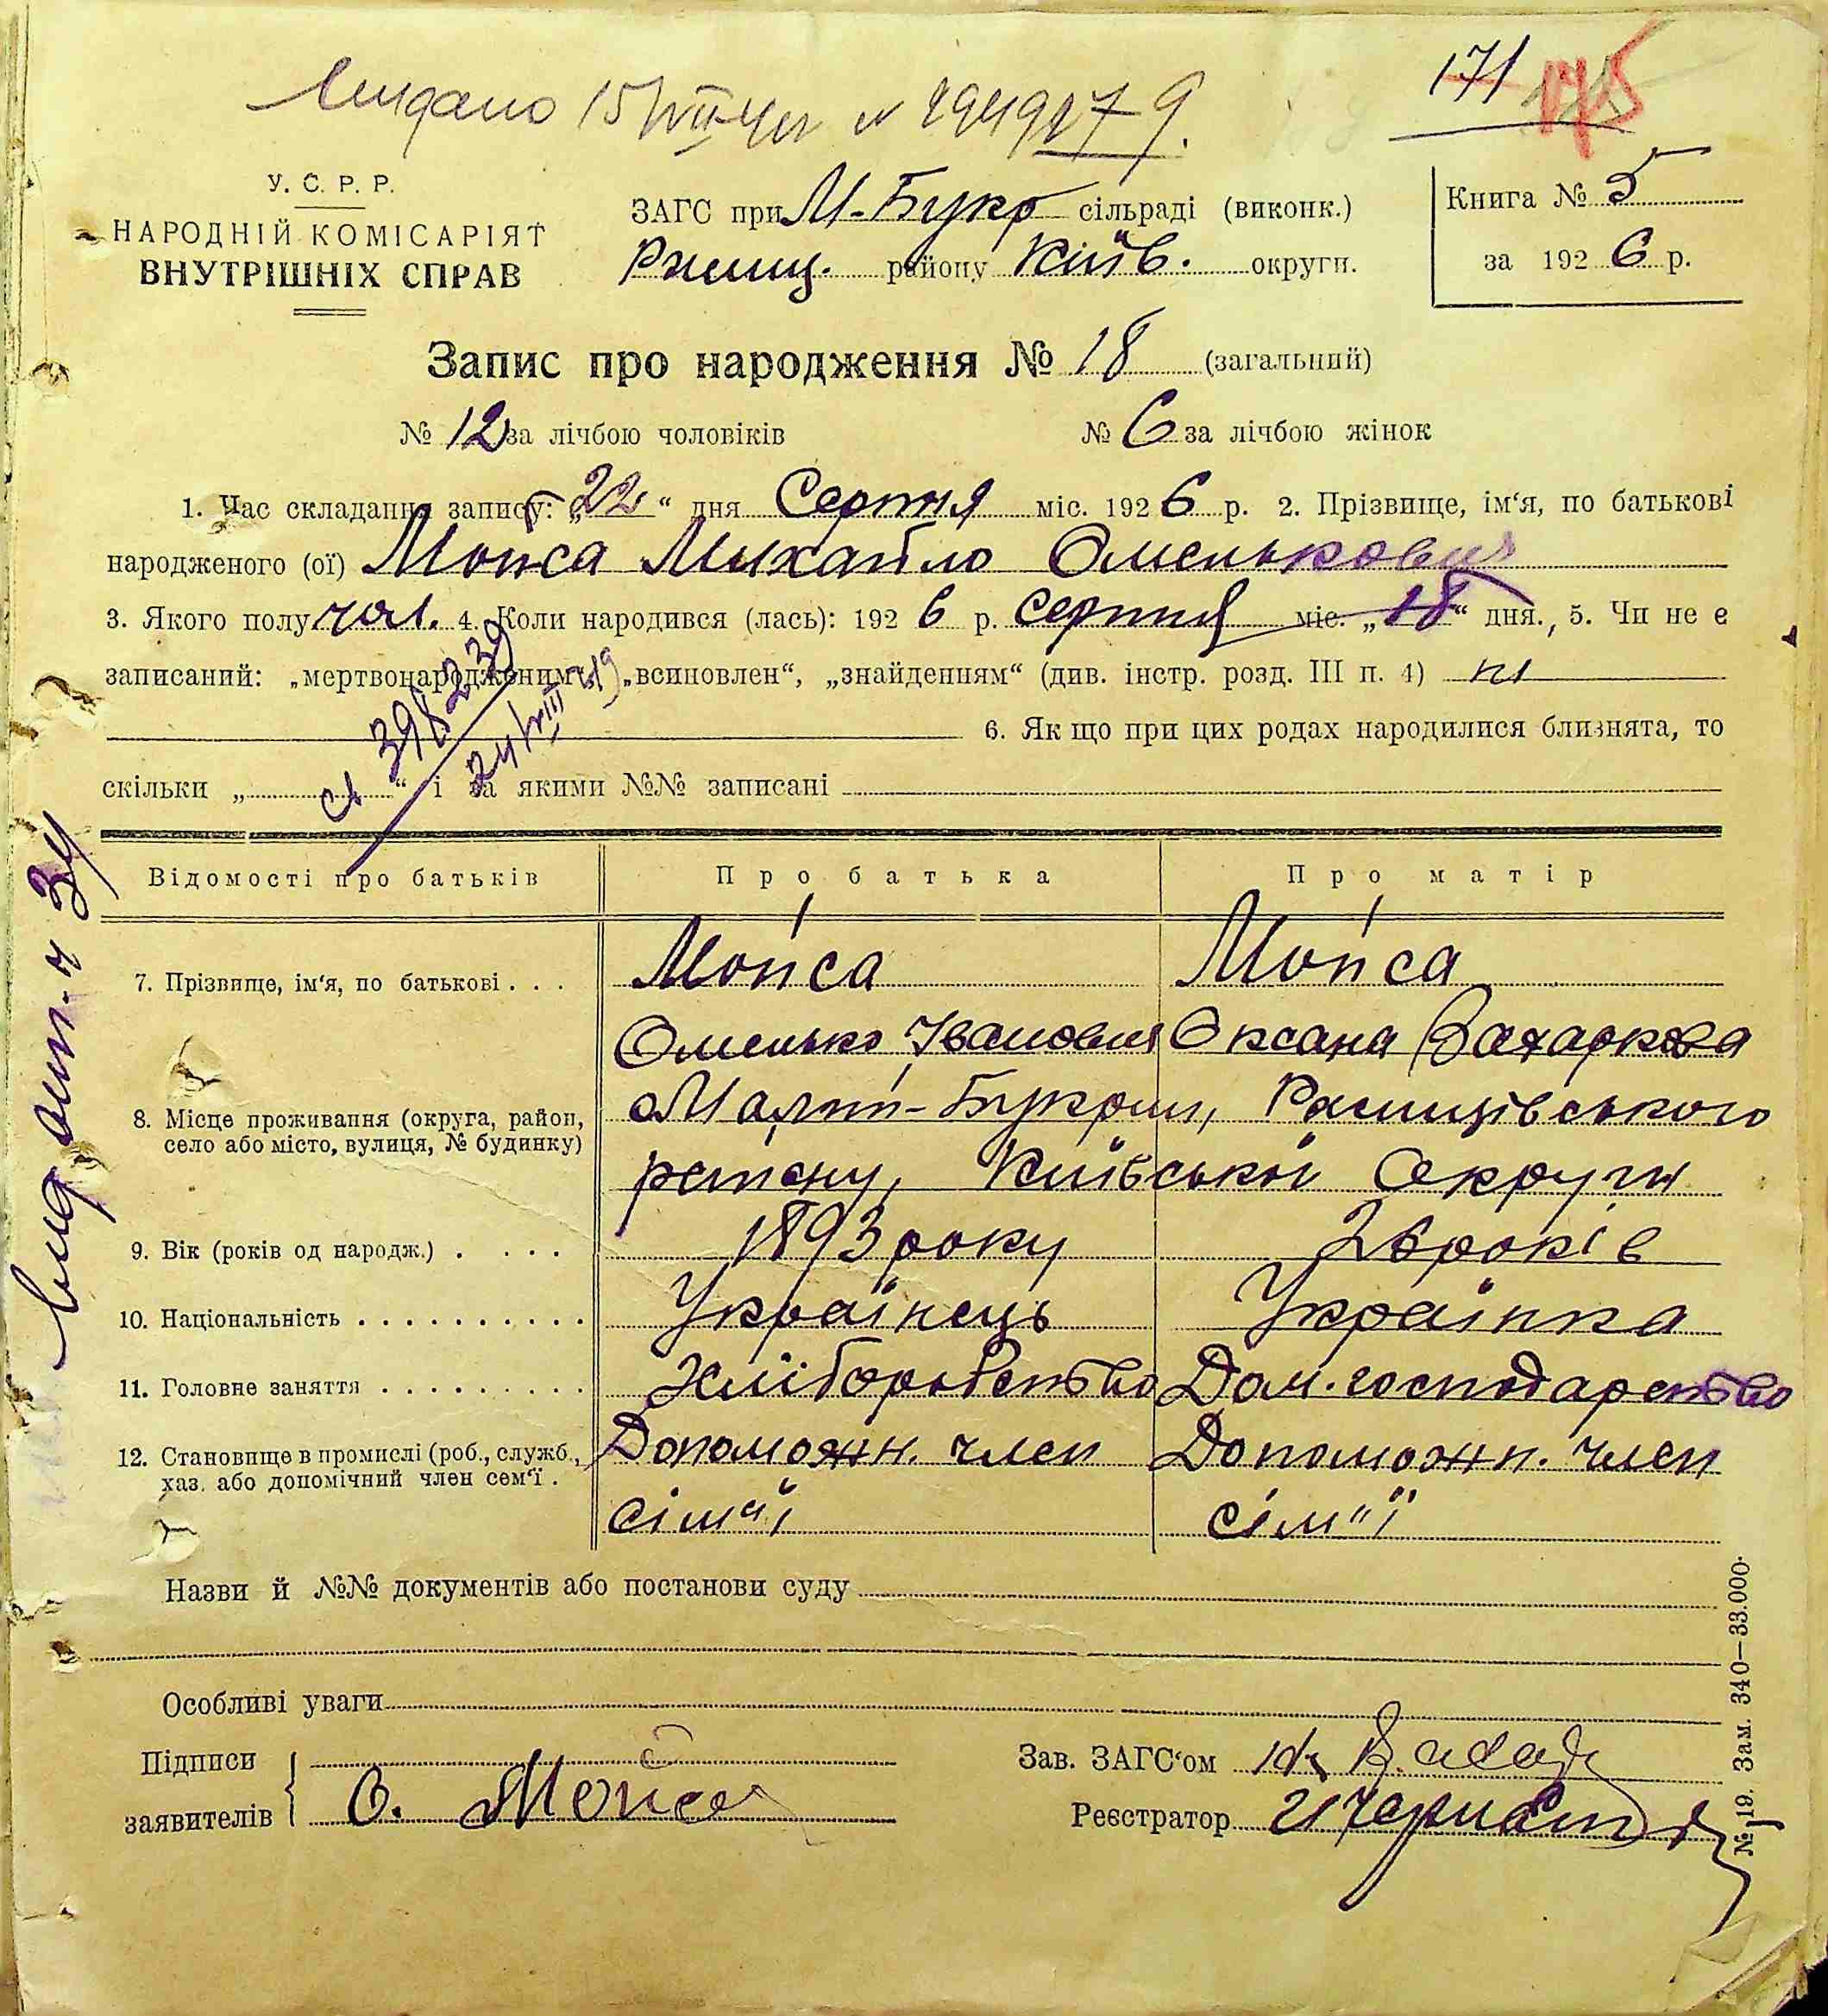 171 175
У. С. Р. Р.
НАРОДНІЙ КОМІСАРІЯТ
ВНУТРІШНІХ СПРАВ
ЗАГС при М-Букр сільраді (виконк.)
Ржищ. району Київ. округи.
Книга № 5
за 1926 р.
Запис про народження № 18 (загальний)
№ 12 за лічбою чоловіків № 6 за лічбою жінок
1. Час складання запису: „22“ дня Серпня міс. 1926 р. 2. Прізвище, ім‘я, по батькові
народженого (ої) Мопса Михайло Оменькович
3. Якого полу чол. 4. Коли народився (лась): 1926 р. серпня міс. „18“ дня., 5. Чи не є
записаний: „мертвонародженим“, „всиновлен“, „знайденням“ (див. інстр. розд. III п. 4) ні
6. Як що при цих родах народилися близнята, то
скільки „ “ і за якими №№ записані
398239
Відомості про батьків Про батька Про матір
7. Прізвище, ім‘я, по батькові . . . Мопса Мопса
Оменько Іванович Оксана Захаркова
8. Місце проживання (округа, район,
село або місто, вулиця, № будинку)
Малий-Букрин, Ржищівського
району, Київської Округи
9. Вік (років од народж.) . . . . 1893 року 26 років
10. Національність . . . . . . . . . . Українець Українка
11. Головне заняття . . . . . . . . . Хліборобство Дом. господарство
12. Становище в промислі (роб., служб.,
хаз. або допомічний член сем‘ї .
Допоможн. член Допоможн. член
сім"ї сім"ї
Назви й №№ документів або постанови суду
Особливі уваги
Підписи
заявителів
О. Мопса
Зав. ЗАГС‘ом
Реєстратор
№ 19. Зам. 340—33.000.